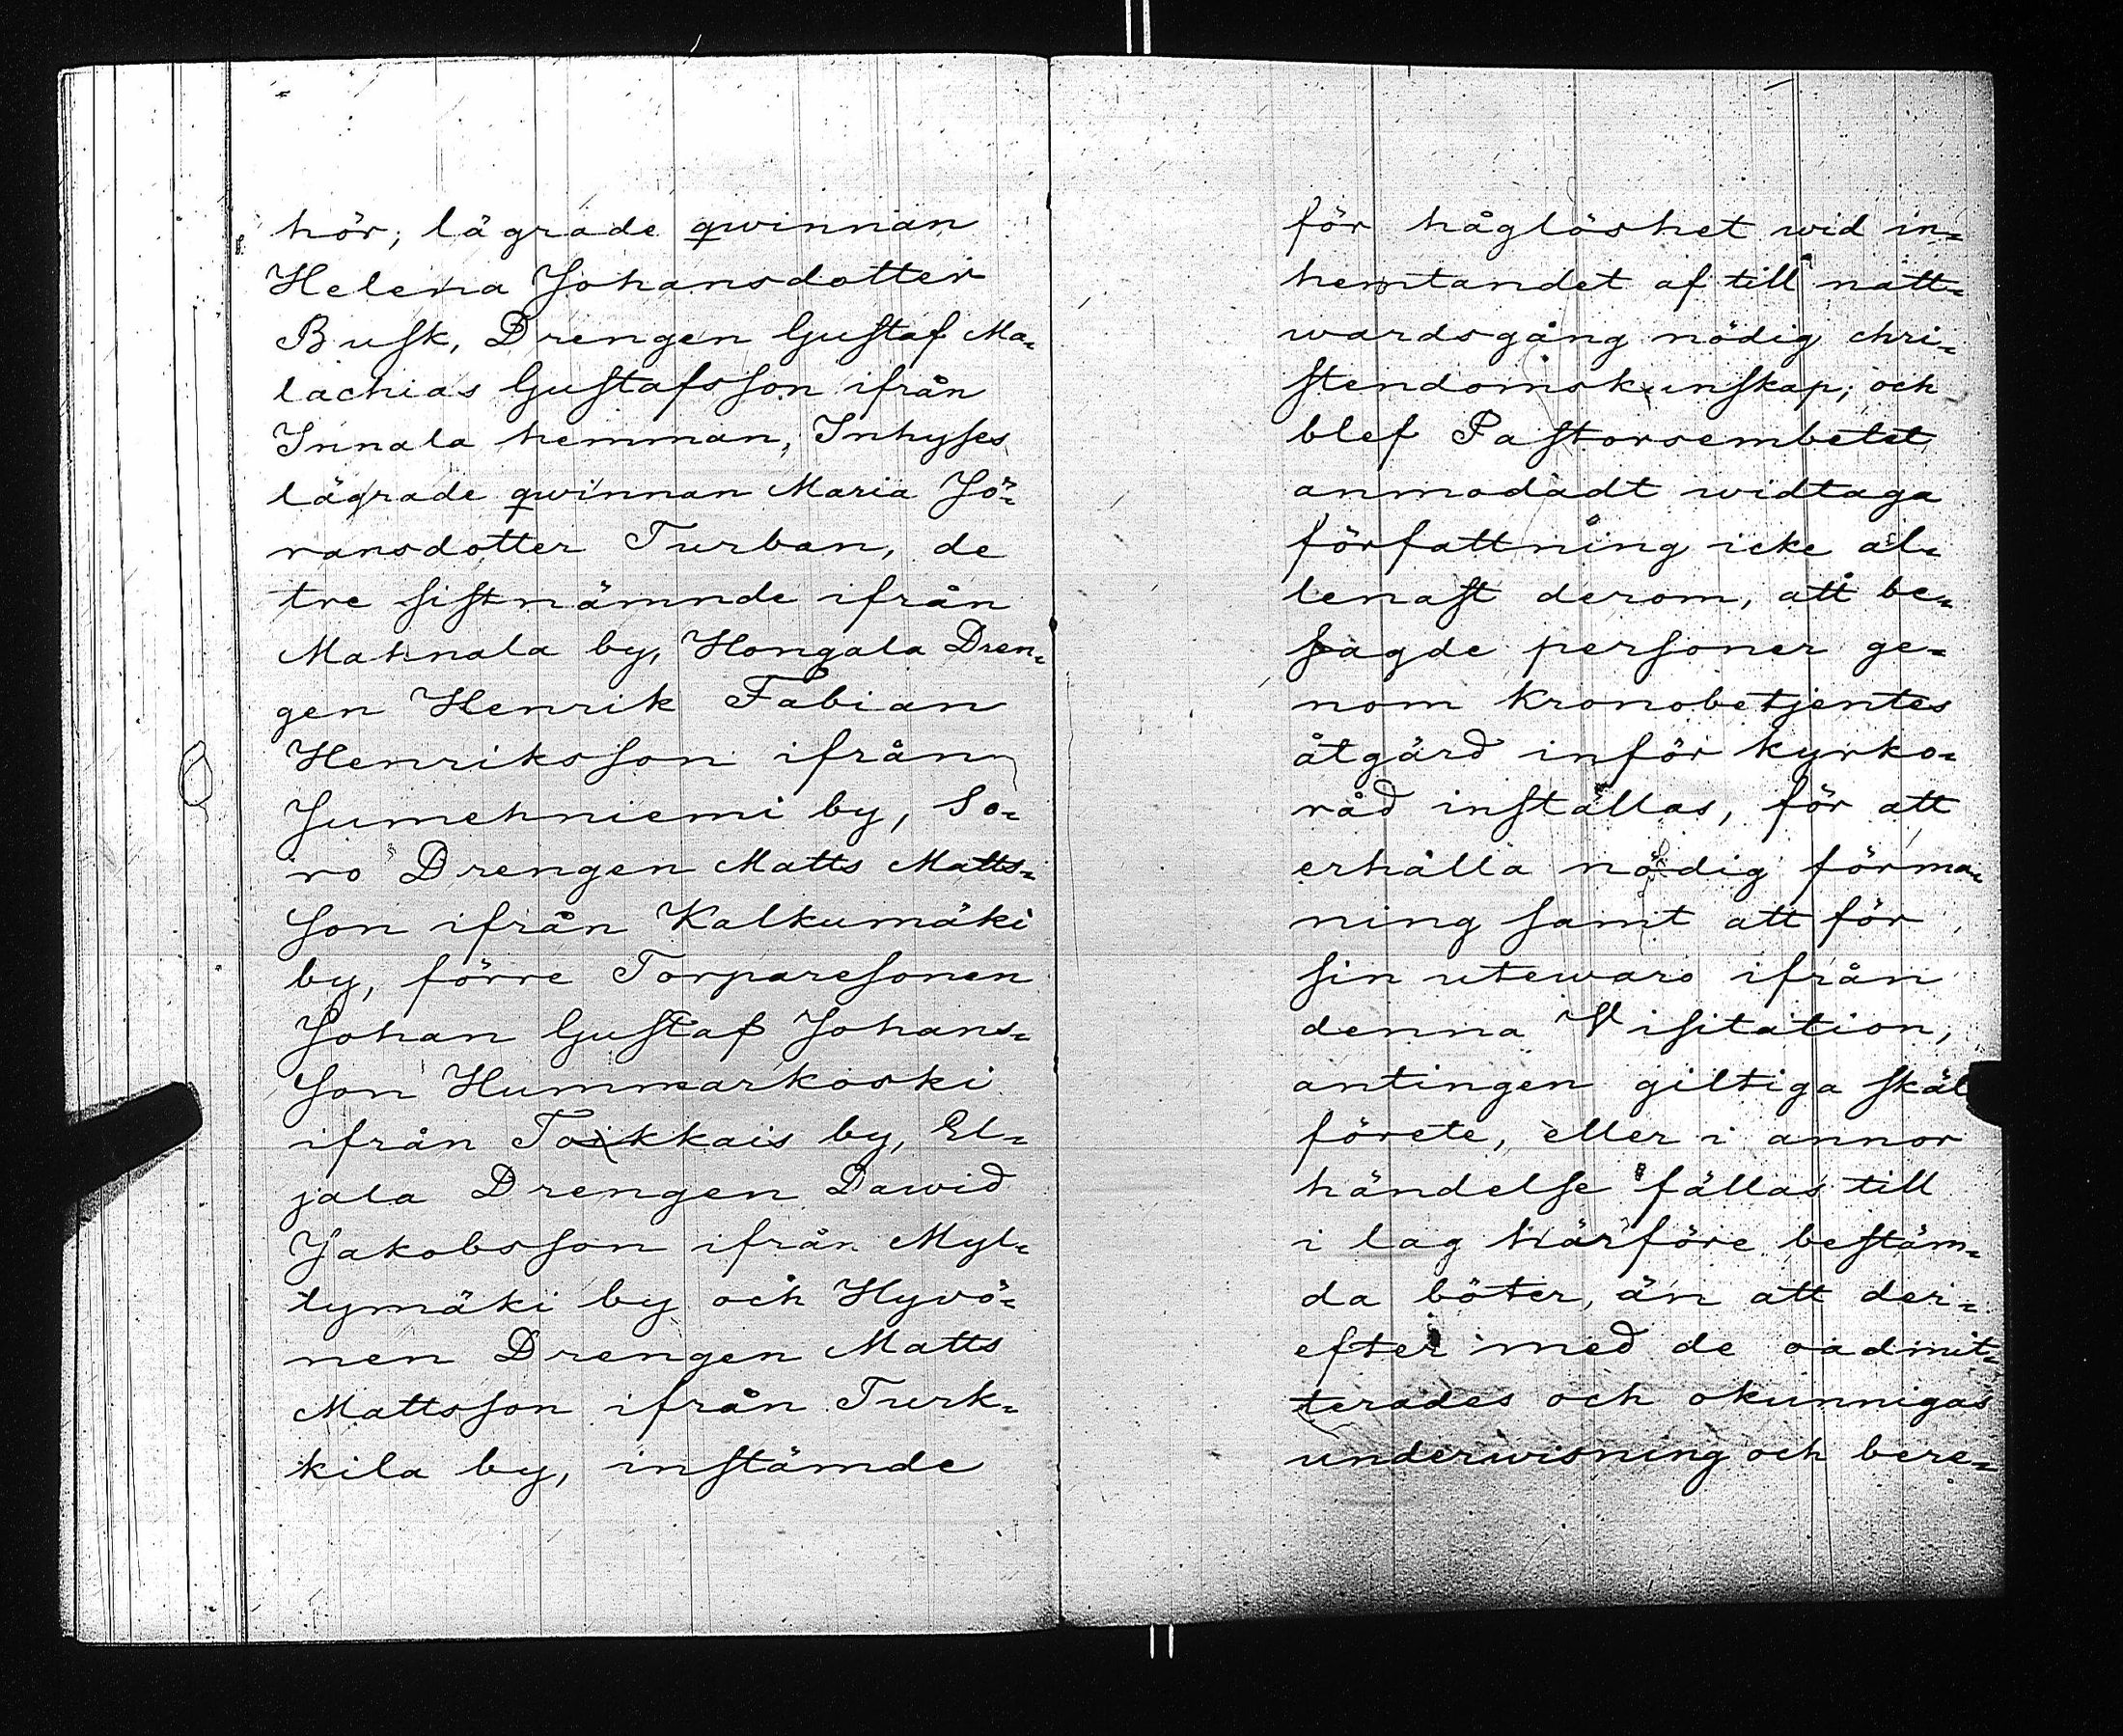 hör; lägrade qwinnan
Helena Johansdotter
Busk, Drengen Gustaf Ma-
lachias Gustafsson ifrån
Innala hemman, Inhyses
lägrade qwinnan Maria Jö-
ransdotter Turban, de
tre sistnämnde ifrån
Mahnala by, Hongala Dren-
gen Henrik Fabian
Henriksson ifrån
Jumehniemi by, So-
ro Drengen Matts Matts-
son ifrån Kalkumäki
by, förre Torparesonen
Johan Gustaf Johans-
son Hummarkoski
ifrån Toikkais by, El-
jala Drengen Dawid
Jakobsson ifrån Myl-
lymäki by och Hyvö-
nen Drengen Matts
Mattsson ifrån Turk-
kila by, instämde
för håglöshet wid in-
hemtandet af till natt-
wardsgång nödig chri-
stendomskunskap; och
blef Pastorsembetet
anmodadt widtaga
författning icke al-
lenast derom, att be-
sagde personer ge-
nom kronobetjentes
åtgärd inför kyrko-
råd inställas, för att
erhålla nödig förma-
ning samt att för
sin utewaro ifrån
denna Visitation,
antingen giltiga skäl
förete, eller i annor
händelse fällas till
i lag härföre bestäm-
da böter, än att der-
efter med de oadmit-
terades och okunnigas
underwisning och bere-